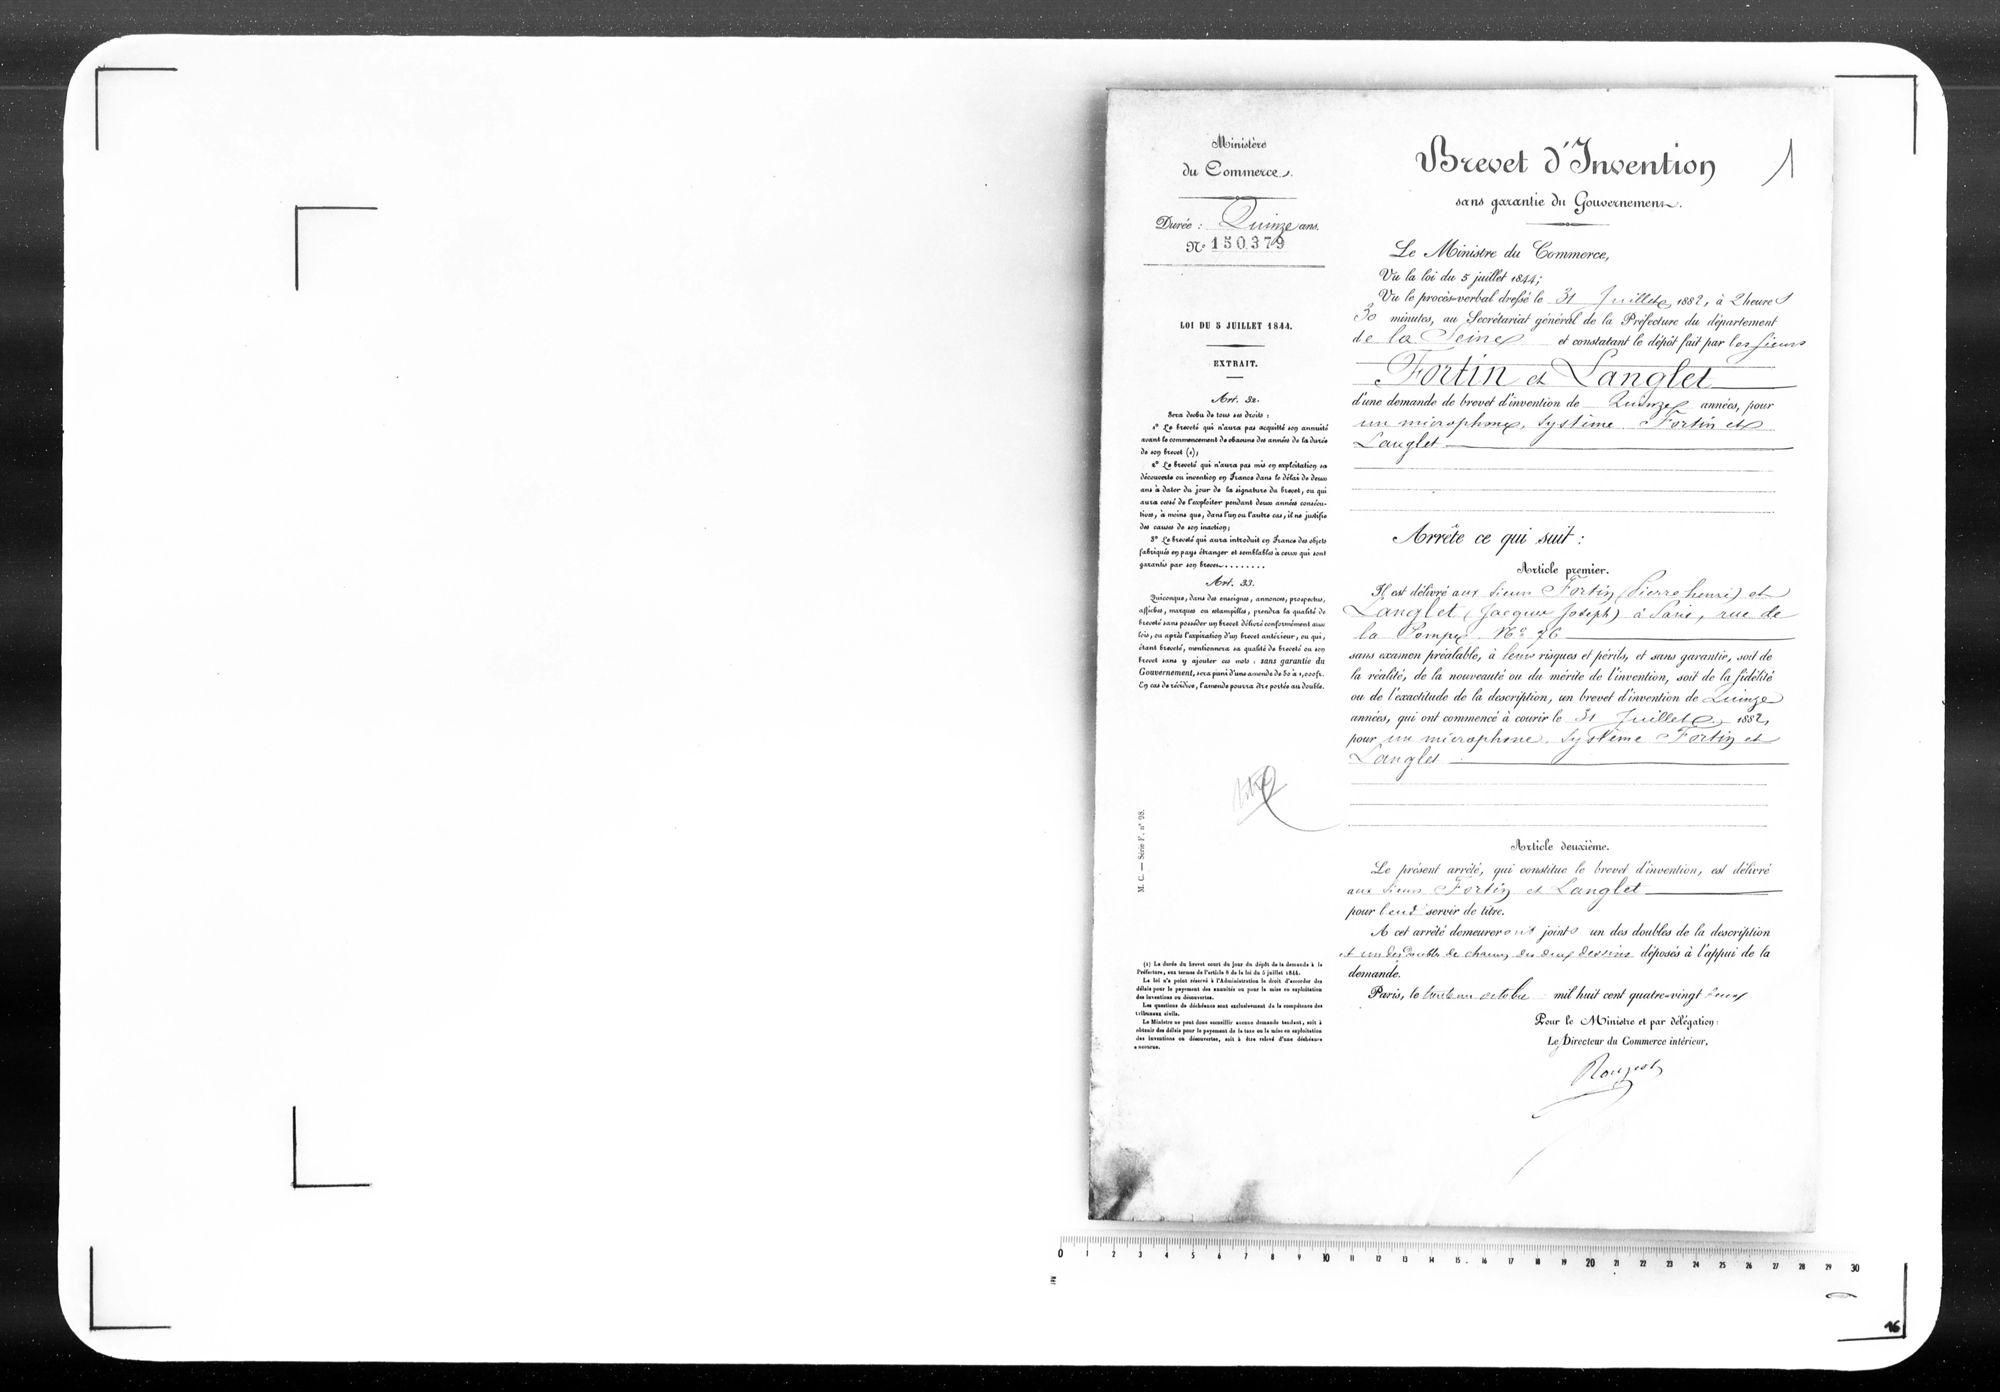 Ministère
du Commerce.
Durée : Quinze ans.
N° 150379
LOI DU 5 JUILLET 1844.
EXTRAIT.
Art. 32.
Sera déchu de tous ses droits :
1° Le breveté qui n'aura pas acquitté son annuité
avant le commencement de chacune des années de la durée
de son brevet (1);
2° Le breveté qui n'aura pas mis en exploitation sa
découverte ou invention en France dans le délai de deux
ans à dater du jour de la signature du brevet, ou qui
aura cessé de l'exploiter pendant deux années consécu-
tives, à moins que, dans l'un ou l'autre cas, il ne justifie
des causes de son inaction;
3° Le breveté qui aura introduit en France des objets
fabriqués en pays étranger et semblables à ceux qui sont
garantis par son brevet........
Art. 33.
Quiconque, dans des enseignes, annonces, prospectus,
affiches, marques ou estampilles, prendra la qualité de
breveté sans posséder un brevet délivré conformément aux
lois, ou après l'expiration d'un brevet antérieur, ou qui,
étant breveté, mentionnera sa qualité de breveté ou son
brevet sans y ajouter ces mots : sans garantie du
Gouvernement, sera puni d'une amende de 50 à 1,000 fr.
En cas de récidive, l'amende pourra être portée au double.
M. C. — Série F. n° 98.
(1) La durée du brevet court du jour du dépôt de la demande à la
Préfecture, aux termes de l'article 8 de la loi du 5 juillet 1844.
La loi n'a point réservé à l'Administration le droit d'accorder des
délais pour le payement des annuités ou pour la mise en exploitation
des inventions ou découvertes.
Les questions de déchéance sont exclusivement de la compétence des
tribunaux civils.
Le Ministre ne peut donc accueillir aucune demande tendant, soit à
obtenir des délais pour le payement de la taxe ou la mise en exploitation
des inventions ou découvertes, soit à être relevé d'une déchéance
encourue.
Brevet d'Invention
1
sans garantie du Gouvernement.
Le Ministre du Commerce,
Vu la loi du 5 juillet 1844;
Vu le procès-verbal dressé le 31 Juillet 1882, à 2 heures
30 minutes, au Secrétariat général de la Préfecture du département
de la Seine et constatant le dépôt fait par les sieurs
Fortin et Langlet
d'une demande de brevet d'invention de Quinze années, pour
un microphone, système Fortin et
Langlet
Arrête ce qui suit :
Article premier.
Il est délivré aux sieurs Fortin (Pierre henri) et
Langlet (Jacques Joseph) à Paris, rue de
la Pompe N° 76
sans examen préalable, à leurs risques et périls, et sans garantie, soit de
la réalité, de la nouveauté ou du mérite de l'invention, soit de la fidélité
ou de l'exactitude de la description, un brevet d'invention de Quinze
années, qui ont commencé à courir le 31 Juillet 1882,
pour un microphone, système Fortin et
Langlet
Article deuxième.
Le présent arrêté, qui constitue le brevet d'invention, est délivré
aux sieurs Fortin et Langlet
pour leur servir de titre.
A cet arrêté demeureront joints un des doubles de la description
et un des doubles de chacun des deux dessins déposés à l'appui de la
demande.
Paris, le trente un octobre mil huit cent quatre-vingt deux
Pour le Ministre et par délégation :
Le Directeur du Commerce intérieur,
0 1 2 3 4 5 6 7 8 9 10 11 12 13 14 15 16 17 18 19 20 21 22 23 24 25 26 27 28 29 30
16